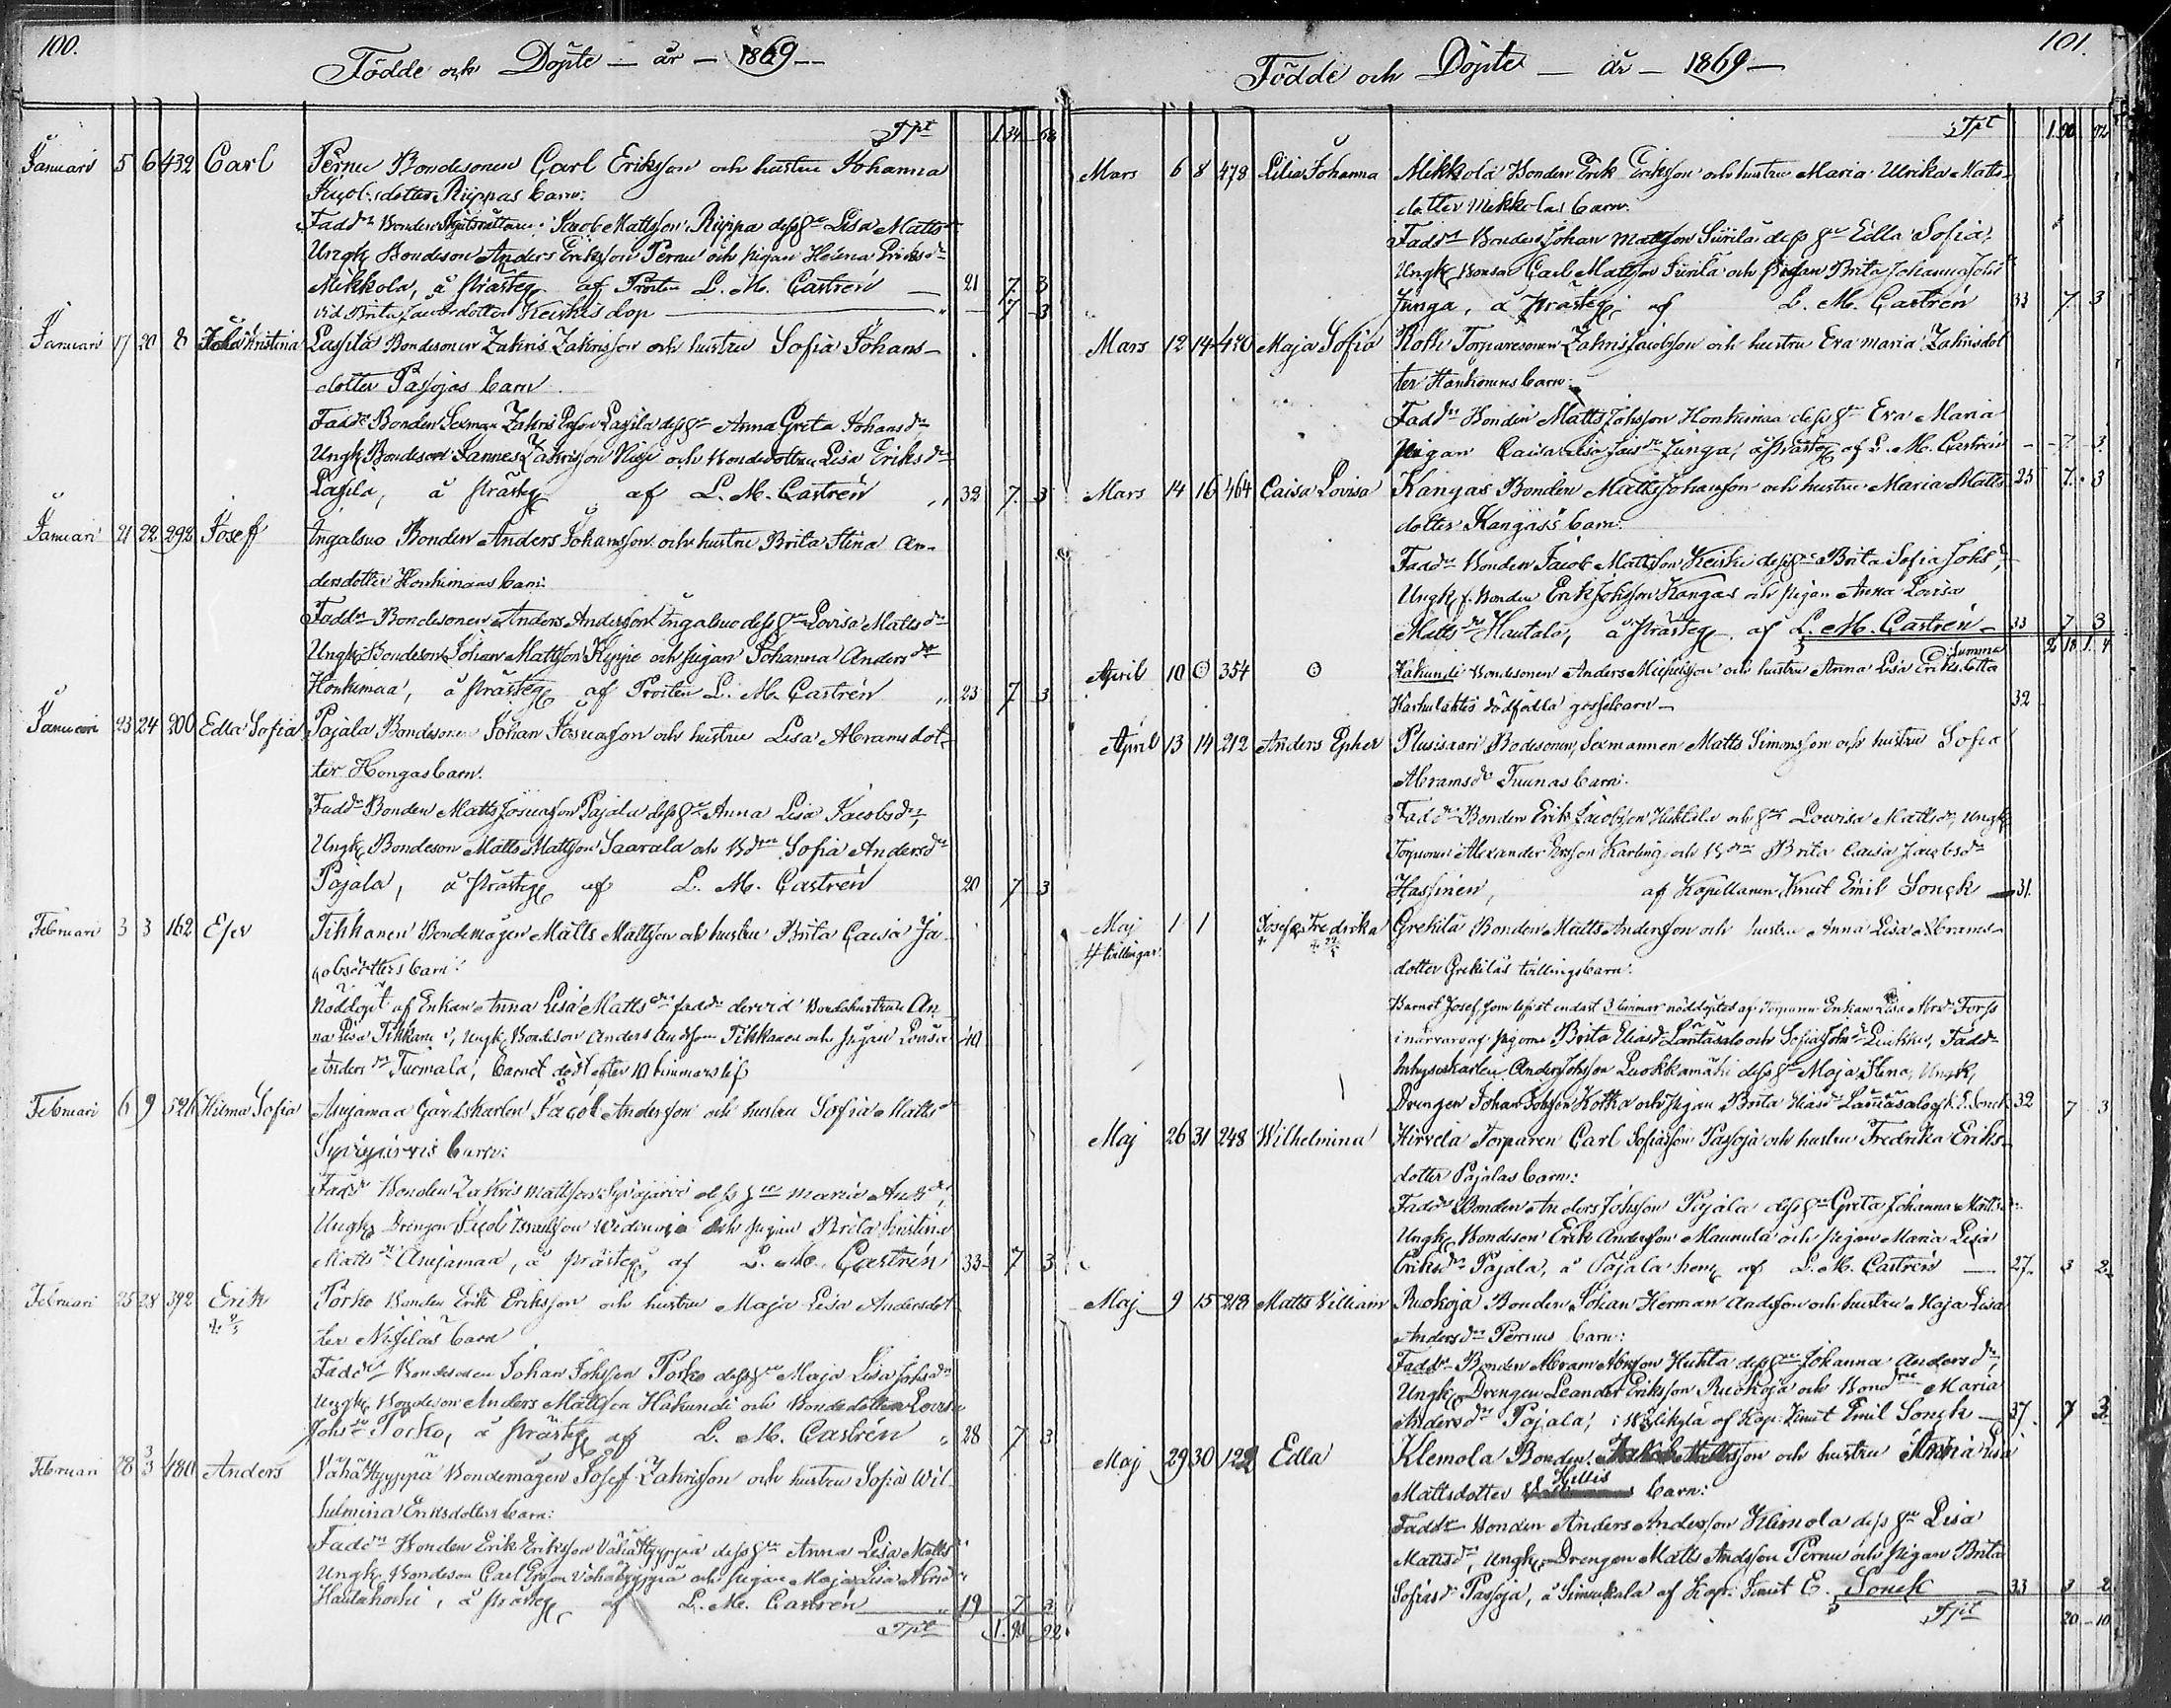 100.
Födde och Döpte — år — 1869 —
Tpt 134 68
Januari 5 6 432 Carl Pernu Bondesonen Carl Eriksson och hustru Johanna
Jacobsdotter Riippas barn:
Fadd Bonden Jacob Mattsson Riippa dess Lisa Matts
Ungk Bondeson Anders Eriksson Pernu och pigan Helena Eriksd
Mikkola, å prästeg af Prosten L. M. Castrén — 21 7 3
vid Brita Jacobsdotter Keiskis dop — „ 7 3
Januari 17 20 8 Kristina Lassila Bondesonen Zakris Zakrisson och hustru Sofia Johans-
dotter Pasojas barn
Fadd Bonden Sexman Zakris Lassila dess Anna Greta Johansd
Ungk Bondeson Jannes Zakrisson och Bondedottren Lisa Eriksd
Lassila, å prästeg af L. M. Castrén „ 32 7 3
Januari 21 22 292 Josef Ingalsuo Bonden Anders Johansson och hustru Brita Stina An-
dersdotter Honkimaas barn:
Fadd Bondesonen Anders Andersson Ingalsuo dess Lovisa Mattsd
Ungk Bondeson Johan Mattsson och pigan Johanna Andersd
Honkimaa, å prästeg af Prosten L. M. Castrén „ 23 7 3
Januari 23 24 200 Edla Sofia Pajala Bondesonen Johan Josuasson och hustru Lisa Abramsdot-
ter Hongas barn.
Fadd Bonden Matts Josuasson Pajala dess Anna Lisa Jacobsd,
Ungk Bondeson Matts Mattsson Saarala och Sofia Andersd
Pajala, å prästeg af L. M. Castrén 20 7 3
Februari 3 3 162 Tihkanen Bondemågen Matts Mattsson och hustru Brita Caisa Ja-
cobsdotters barn:
Nöddöpt af Enkan Anna Lisa Mattsd fadd dervid Bondehustrun An-
na Lisa Tihkanen, Ungk Bondeson Anders Andsson Tihkanen och pigan Lovisa 40
Andersd Turmala, barnet dödt efter 10 timmars lif
Februari 6 9 526 Hilma Sofia Asujamaa Gårdskarlen Jacob Andersson och hustru Sofia Mattsd
Syväjärvis barn:
Fadd Bonden Zakris Mattsson Syväjärvi dess Maria Andsd,
Ungk Drengen Jacob och pigan Brita Kristina
Mattsd Asujamaa, å prästeg af L. M. Castrén 33 7 3
Februari 25 28 392 Erik Porko Bonden Erik Eriksson och hustru Maja Lisa Andersdot
ter Nissiläs barn
Fadd Bondesonen Johan Johsson Porko dess Maja Lisa Johsd
Ungk Bondeson Anders Mattsson Hakundi och Bondedottren Lovisa
Johsd Porko, å prästeg af L. M. Castrén „ 28 7 3
Februari 28 3/3 480 Anders Vähähyyppiä Bondemågen Josef Zakrisson och hustru Sofia Wil-
helmina Eriksdotters barn:
Fadd Bonden Erik Eriksson Vähähyyppiä dess Anna Lisa Matts
Ungk Bondeson Carl Ersson Vähähyyppiä och pigan Maja Lisa
Hautakoski, å prästeg af L. M. Castrén 19 7 3
Tpt 1.90 92
101.
Födde och Döpte — år — 1869 —
Tpt 190 92
Mars 6 8 478 Lilia Johanna Mikkola Bonden Erik Eriksson och hustru Maria Ulrika Matts-
dotter Mikkolas barn:
Fadd Bonden Johan Mattsson Siirilä dess Edla Sofia,
Ungk Bonden Carl Mattsson Siirilä och pigan Brita Johanna Johsd
Junga, å prästeg af L. M. Castrén 33 7 3
Mars 12 14 470 Maja Sofia Torparesonen Zakris Jacobsson och hustru Eva Maria Zakrisdot
ter barn:
Fadd Bonden Matts Johsson Honkimaa dess Eva Maria
Pigan Caisa Lisa Junga, å prästeg af L. M. Castrén — 7 3
Mars 14 16 464 Caisa Lovisa Kangas Bonden Matts Johansson och hustru Maria Matts 25 7 3
dotter Kangas's barn:
Fadd Bonden Jacob Mattsson Keiski dess Brita Sofia Johsd,
Ungk f. Bonden Erik Johsson Kangas och pigan Anna Lovisa
Mattsd Hautala, å prästeg af L. M. Castrén — 33 7 3
Summa 2 18 1 4
April 10 ⊙ 354 ⊙ Hakundi Bondesonen Anders Michelsson och hustru Anna Lisa Eriksdotter
dödfödda gossebarn — 32
April 13 14 212 Anders Bodesonen, Sexmannen Matts Simonsson och hustru Sofia
Abramsd Tuunas barn:
Fadd Bonden Erik Jacobsson Huhtala och Lovisa Mattsd, Ungk
Torparen Alexander Ersson Karling och Brita Caisa Jacobsd
Hassinen, af Kapellanen Knut Emil Sonck — 31.
Maj 1 1 Josef & Fredrika Grekilä Bonden Matts Andersson och hustru Anna Lisa Abrams-
# tvillingar dotter Grekiläs tvillingbarn:
Barnet Josef, som lefvat endast 3 timmar nöddöptes af Enkan Lisa Abrsd Forss
i närvaro af pigorna Brita Eliasd Lantasalo och Sofia Johsd Luukko, Fadd
Inhyseskarlen Anders Johsson Luokkamäki dess Maja Stina, Ungk,
Drengen Johan Kotka och pigan Brita Eliasd Lantasalo af K. E. Sonck 32 7 3
Maj 26 31 248 Wilhelmina Hirvelä Torparen Carl Sofiasson Pasoja och hustru Fredrika Eriks-
dotter Pajalas barn:
Fadd Bonden Anders Johsson Pajala dess Greta Johanna Mattsd
Ungk Bondeson Erik Andersson Maunula och pigan Maria Lisa
Eriksd Pajala, å Pajala hem af L. M. Castrén — 27. 3 2
Maj 9 15 218 Matts William Ruokoja Bonden Johan Herman Andsson och hustru Maja Lisa
Andersd Pernus barn:
Fadd Bonden Abram Abrsson Huhta dess Johanna Andersd,
Ungk Drengen Leander Eriksson Ruokoja och Maria
Andersd Pajala, i Välikylä af Kap. Knut Emil Sonck — 37. 7 3
Maj 29 30 122 Edla Klemola Bonden och hustru Anna Lisa
Mattsdotter Hillis barn:
Fadd Bonden Anders Andersson Klemola dess Lisa
Mattsd, Ungk Drengen Matts Andsson Pernu och pigan Brita
Sofiasd Pasoja, å Simukala af Kap. Knut E. Sonck — 33 3 2
Tpt 20 10